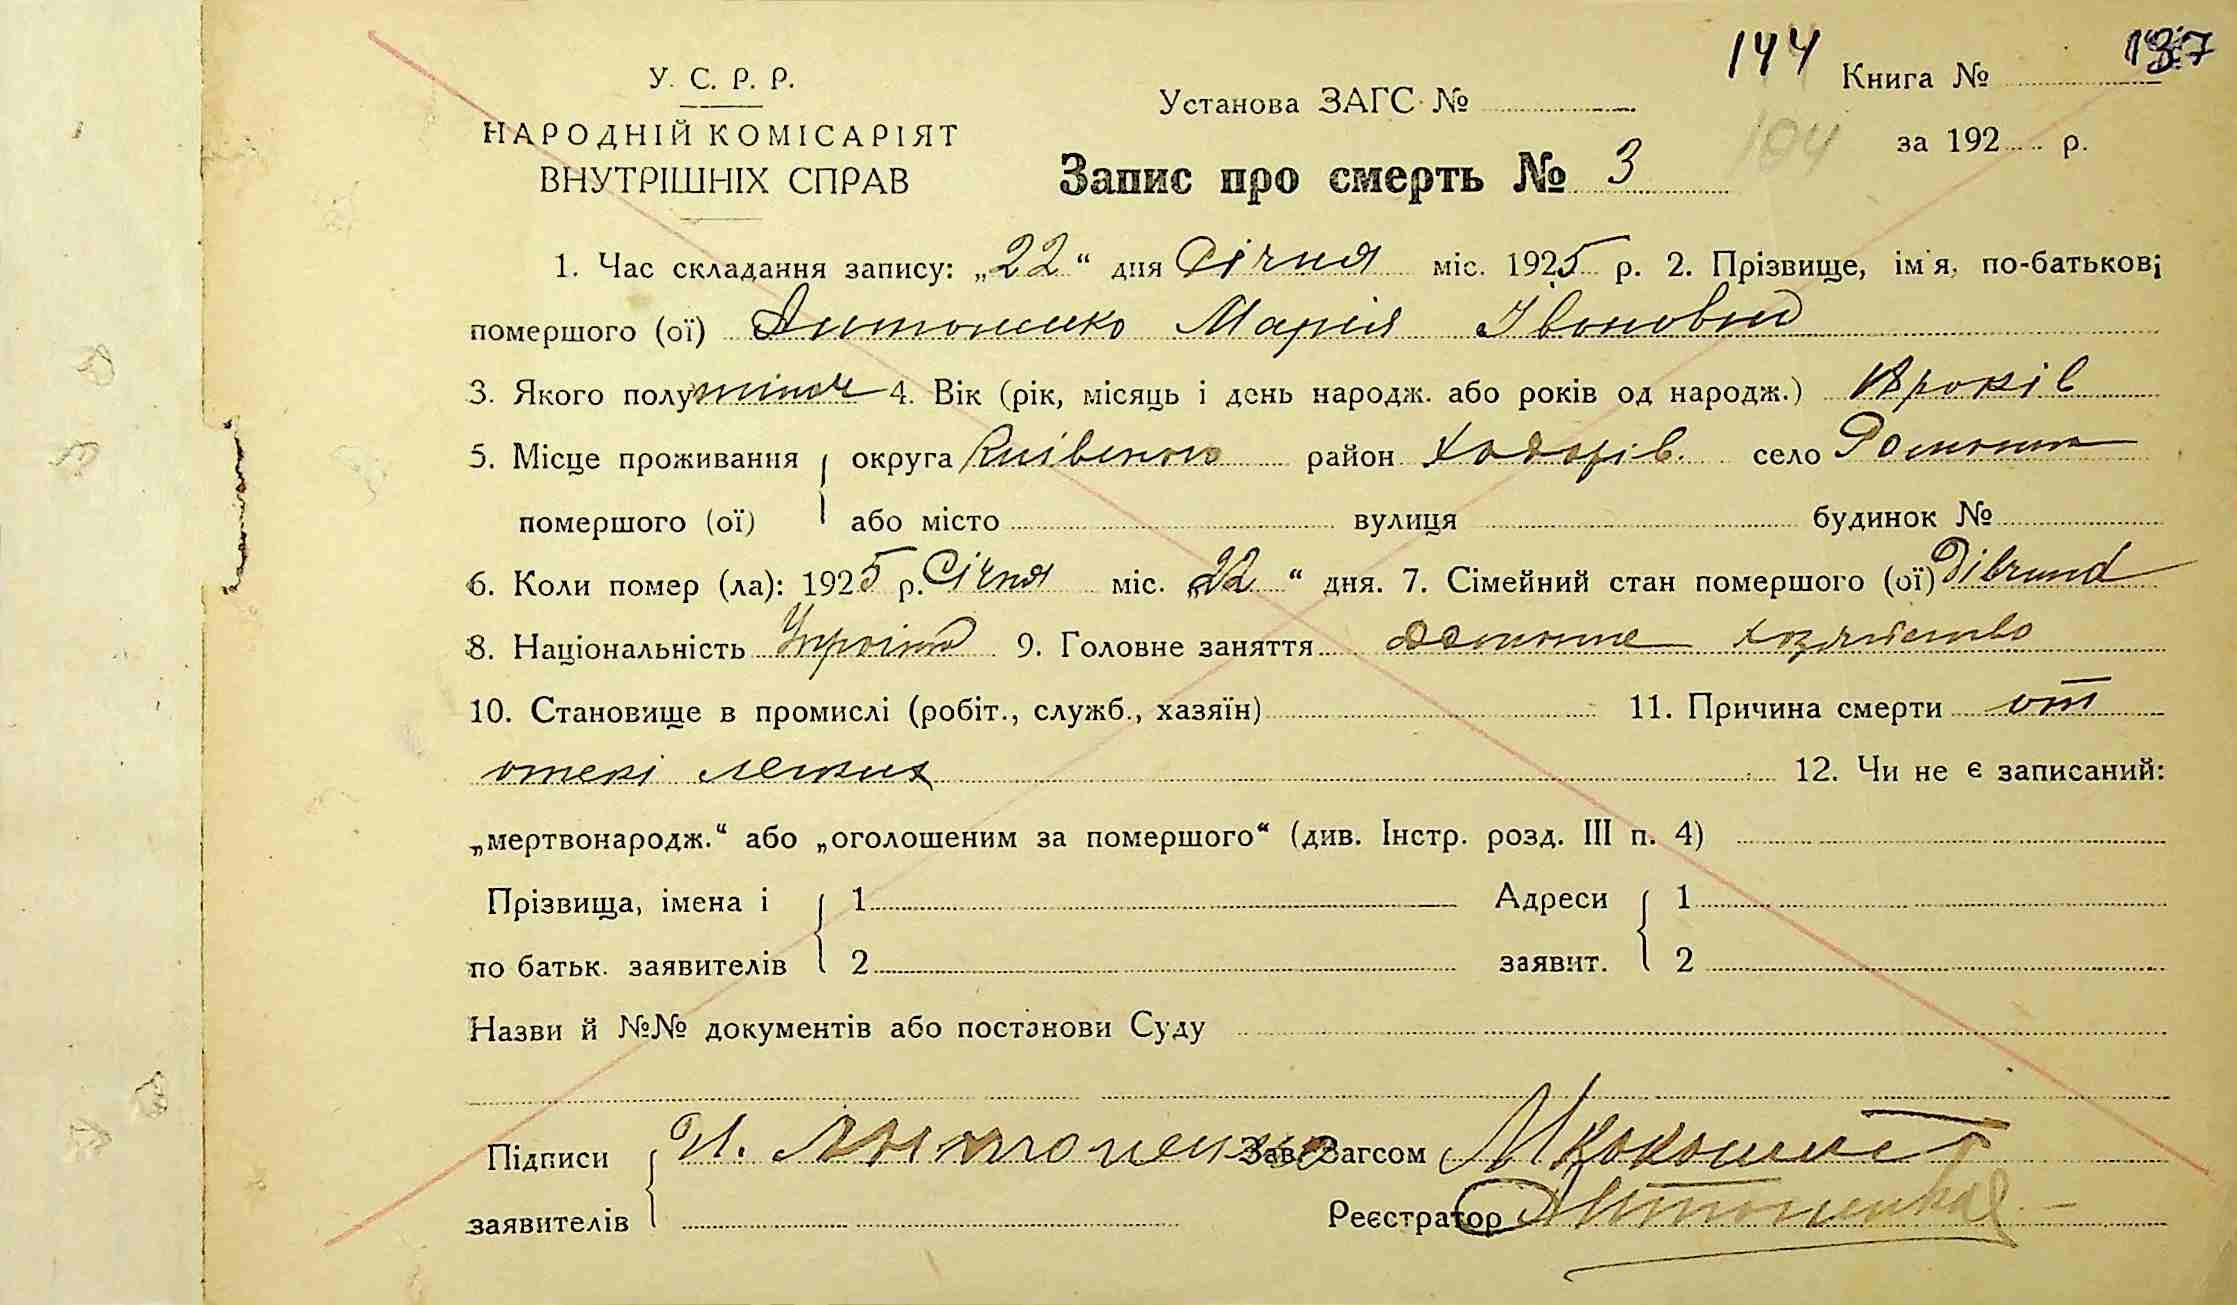 144 137
У. С. Р. Р.
Книга №
Установа ЗАГС №
НАРОДНІЙ КОМІСАРІЯТ
за 192 р.
194
ВНУТРІШНІХ СПРАВ
Запис про смерть № 3
1. Час складання запису: „22“ дня Січня міс. 1925 р. 2. Прізвище, ім'я, по-батькові
помершого (ої) Антоненко Марія Івановна
3. Якого полу жіноч 4. Вік (рік, місяць і день народж. або років од народж.) 18 років
5. Місце проживання округа Київського район Ходорів. село
помершого (ої) або місто вулиця будинок №
6. Коли помер (ла): 1925 р. Січня міс. „22“ дня. 7. Сімейний стан помершого (ої)
8. Національність 9. Головне заняття домашне хозяйство
10. Становище в промислі (робіт., служб., хазяїн) 11. Причина смерти от
отекі легких 12. Чи не є записаний:
„мертвонародж.“ або „оголошеним за помершого“ (див. Інстр. розд. III п. 4)
Прізвища, імена і 1 Адреси 1
по батьк. заявителів 2 заявит. 2
Назви й №№ документів або постанови Суду
Підписи И. Антоненко Зав. Загсом
заявителів Реєстратор Антоненко